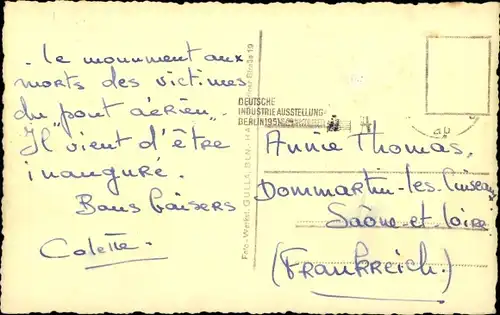 Le monument aux
morts des victimes
du "pont aérien".
Il vient d'être
inauguré.
Bons baisers
Colette.
Foto-Werkst. GULLA, BLN.
DEUTSCHE
INDUSTRIEAUSSTELLUNG
BERLIN 1951
Annie Thomas,
Dommartin-les-Cuiseaux
Saône-et-Loire
(Frankreich.)